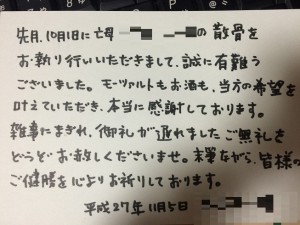 先月、10月1日に亡母の散骨を
お執り行いいただきまして、誠に有難う
ございました。モーツァルトもお酒も、当方の希望を
叶えていただき、本当に感謝しております。
雑事にまぎれ、御礼が遅れましたご無礼を
どうぞお赦しくださいませ。末筆ながら、皆様の
ご健勝を心よりお祈りしております。
平成27年11月5日